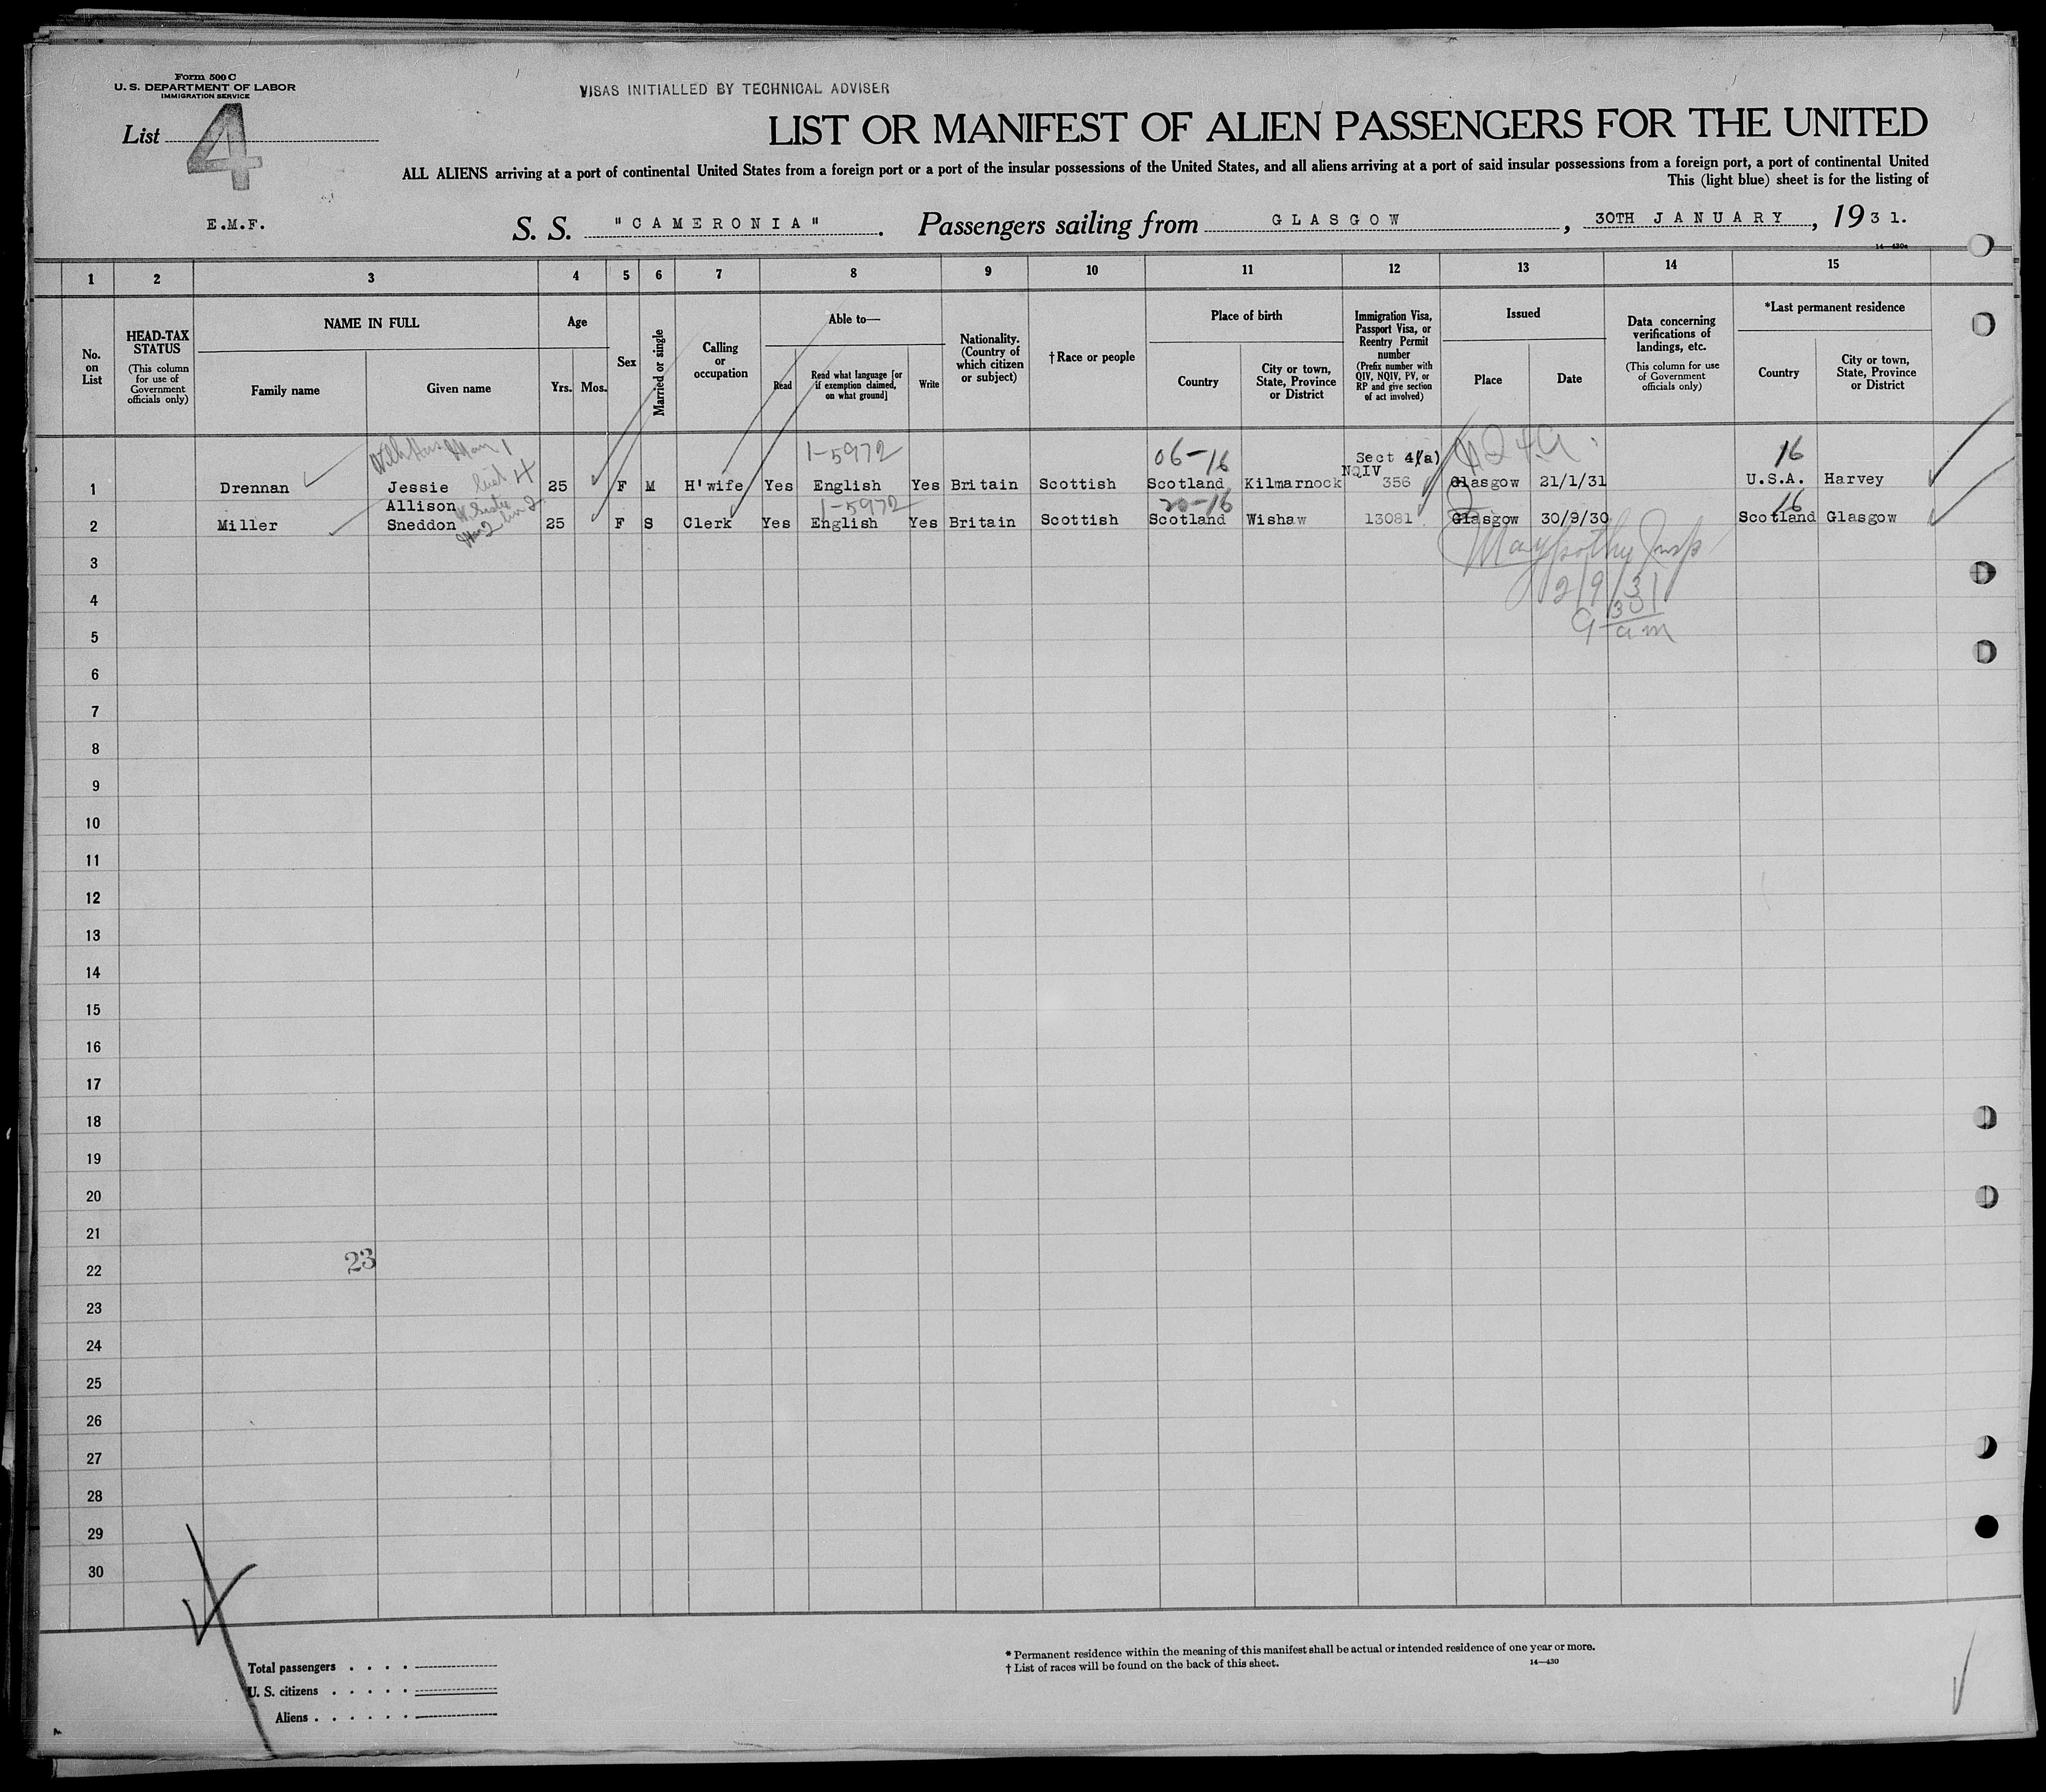 Form 500 C
U. S. DEPARTMENT OF LABOR
IMMIGRATION SERVICE
VISAS INITIALLED BY TECHNICAL ADVISER
List 4
LIST OR MANIFEST OF ALIEN PASSENGERS FOR THE UNITED
ALL ALIENS arriving at a port of continental United States from a foreign port or a port of the insular possessions of the United States, and all aliens arriving at a port of said insular possessions from a foreign port, a port of continental United
This (light blue) sheet is for the listing of
E.M.F.
S. S. "CAMERONIA". Passengers sailing from GLASGOW, 30TH JANUARY, 1931.
14—430a
1 2 3 4 5 6 7 8 9 10 11 12 13 14 15
No. on List
HEAD-TAX STATUS (This column for use of Government officials only)
NAME IN FULL
Family name
Given name
Age
Yrs.
Mos.
Sex
Married or single
Calling or occupation
Able to—
Read
Read what language [or if exemption claimed, on what ground]
Write
Nationality. (Country of which citizen or subject)
†Race or people
Place of birth
Country
City or town, State, Province or District
Immigration Visa, Passport Visa, or Reentry Permit number (Prefix number with QIV, NQIV, PV, or RP and give section of act involved)
Issued
Place
Date
Data concerning verifications of landings, etc. (This column for use of Government officials only)
*Last permanent residence
Country
City or town, State, Province or District
1-5972 06-16 Sect 4(a) 16
NQIV
1 Drennan Jessie 25 F M H'wife Yes English Yes Britain Scottish Scotland Kilmarnock 356 Glasgow 21/1/31 U.S.A. Harvey
Allison 1-5972 20-16 16
2 Miller Sneddon 25 F S Clerk Yes English Yes Britain Scottish Scotland Wishaw 13081 Glasgow 30/9/30 Scotland Glasgow
3
2/9/31
4
9 30 am
5
6
7
8
9
10
11
12
13
14
15
16
17
18
19
20
21
22 23
23
24
25
26
27
28
29
30
Total passengers
U. S. citizens
Aliens
* Permanent residence within the meaning of this manifest shall be actual or intended residence of one year or more.
† List of races will be found on the back of this sheet.
14—430